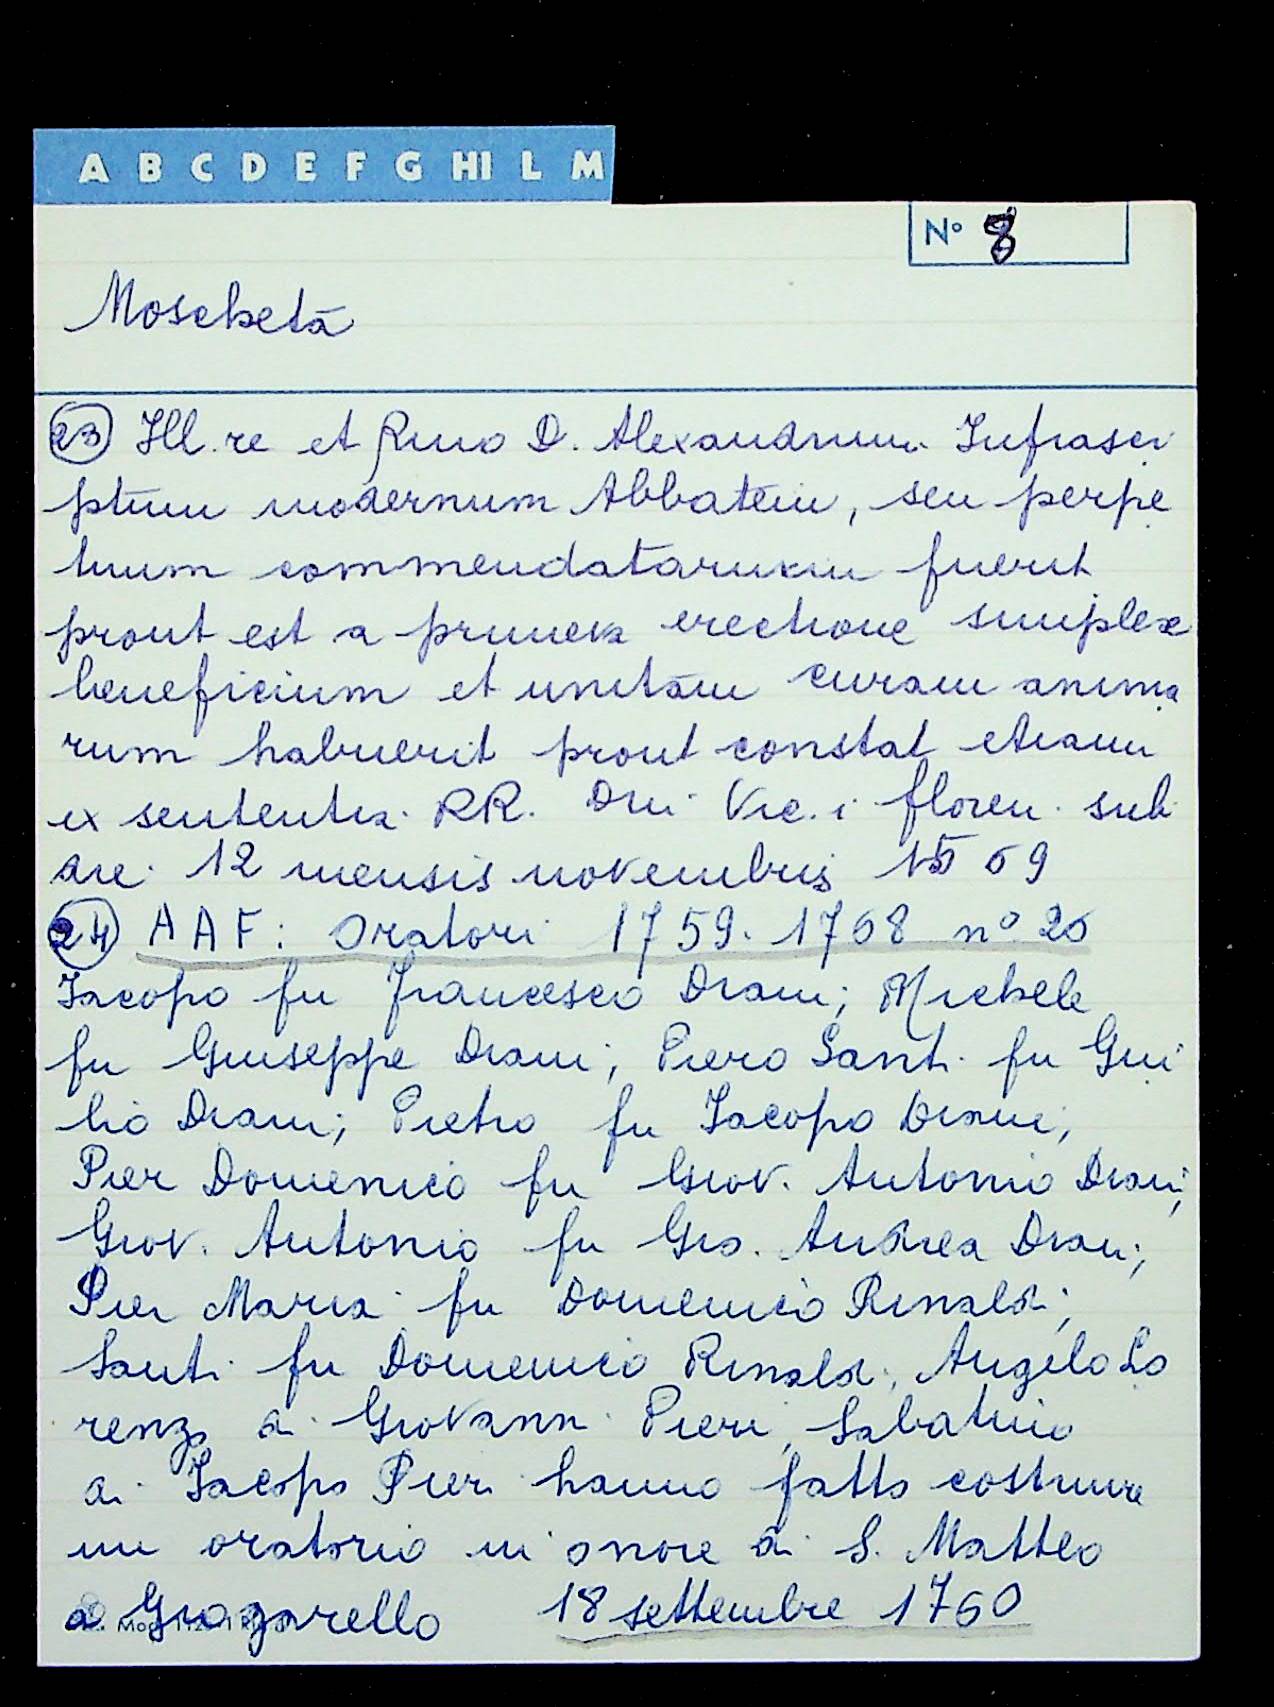 A B C D E F G HI L M
N° 8
Moscheta
23 Ill.re et Rmo D. Alexandrum Infrascri
ptum modernum Abbatem, seu perpe
tuum commendatarium fuerit
prout est a primeva erectione simplex
beneficium et unitam curam anima
rum habuerit prout constat etiam
ex sententia RR. Dni Vic.i floren. sub
die 12 mensis novembris 1569
24 AAF: Oratori 1759-1768 n° 26
Jacopo fu Francesco Diani; Michele
fu Giuseppe Diani; Piero Santi fu Giu
lio Diani; Pietro fu Jacopo Diani;
Pier Domenico fu Giov. Antonio Diani;
Giov. Antonio fu Gio. Andrea Diani;
Pier Maria fu Domenico Rinaldi;
Santi fu Domenico Rinaldi, Angelo Lo
renzo di Giovanni Pieri, Sabatino
di Jacopo Pieri hanno fatto costruire
un oratorio in onore di S. Matteo
a Giogarello 18 settembre 1760